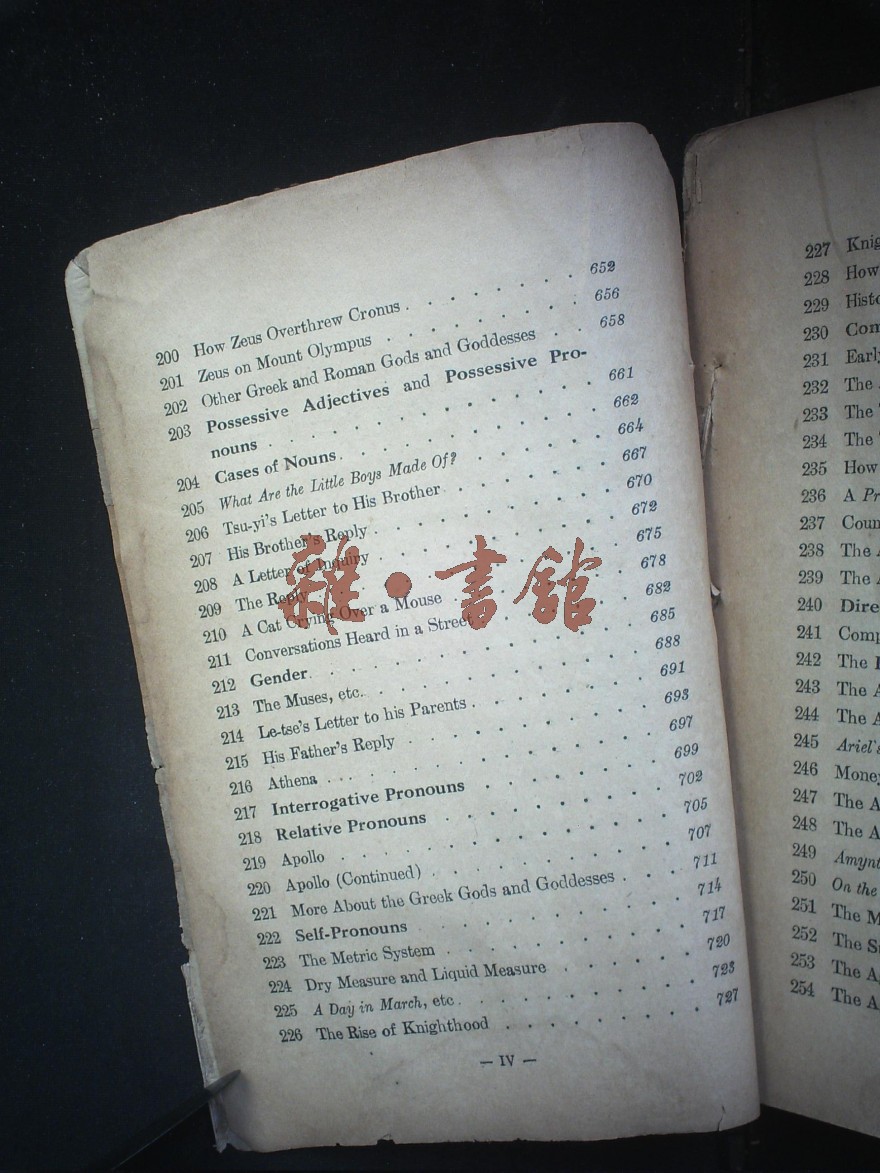 200 How Zeus Overthrew Cronus . . . . . . . 652
201 Zeus on Mount Olympus . . . . . . . . 656
202 Other Greek and Roman Gods and Goddesses . . 658
203 Possessive Adjectives and Possessive Pro-
nouns . . . . . . . . . . . . . 661
204 Cases of Nouns . . . . . . . . . . . 662
205 What Are the Little Boys Made Of? . . . . . . 664
206 Tsu-yi's Letter to His Brother . . . . . . . 667
207 His Brother's Reply . . . . . . . . . . 670
208 A Letter of Inquiry . . . . . . . . . . 672
209 The Reply . . . . . . . . . . . . 675
210 A Cat Crying Over a Mouse . . . . . . . 678
211 Conversations Heard in a Street . . . . . . 682
212 Gender . . . . . . . . . . . . . 685
213 The Muses, etc. . . . . . . . . . . . 688
214 Le-tse's Letter to his Parents . . . . . . . 691
215 His Father's Reply . . . . . . . . . . 693
216 Athena . . . . . . . . . . . . . 697
217 Interrogative Pronouns . . . . . . . . 699
218 Relative Pronouns . . . . . . . . . . 702
219 Apollo . . . . . . . . . . . . . 705
220 Apollo (Continued) . . . . . . . . . . 707
221 More About the Greek Gods and Goddesses . . . 711
222 Self-Pronouns . . . . . . . . . . . 714
223 The Metric System . . . . . . . . . . 717
224 Dry Measure and Liquid Measure . . . . . . 720
225 A Day in March, etc. . . . . . . . . . 723
226 The Rise of Knighthood . . . . . . . . 727
— IV —
227 Knig
228 How
229 Histo
230 Com
231 Early
232 The
233 The
234 The
235 How
236 A Pr
237 Coun
238 The A
239 The A
240 Dire
241 Comp
242 The
243 The A
244 The A
245 Ariel's
246 Money
247 The A
248 The A
249 Amynt
250 On the
251 The M
252 The S
253 The A
254 The A
雜·書館